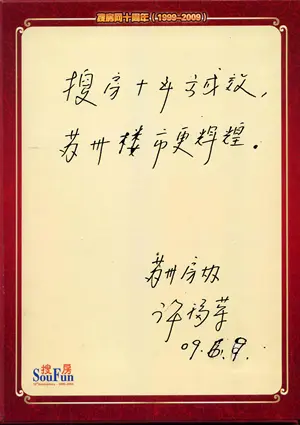 搜房网十周年（1999-2009）
搜房十年有成效，
苏州楼市更辉煌。
苏州房协
许
09.6.9.
搜房
SouFun